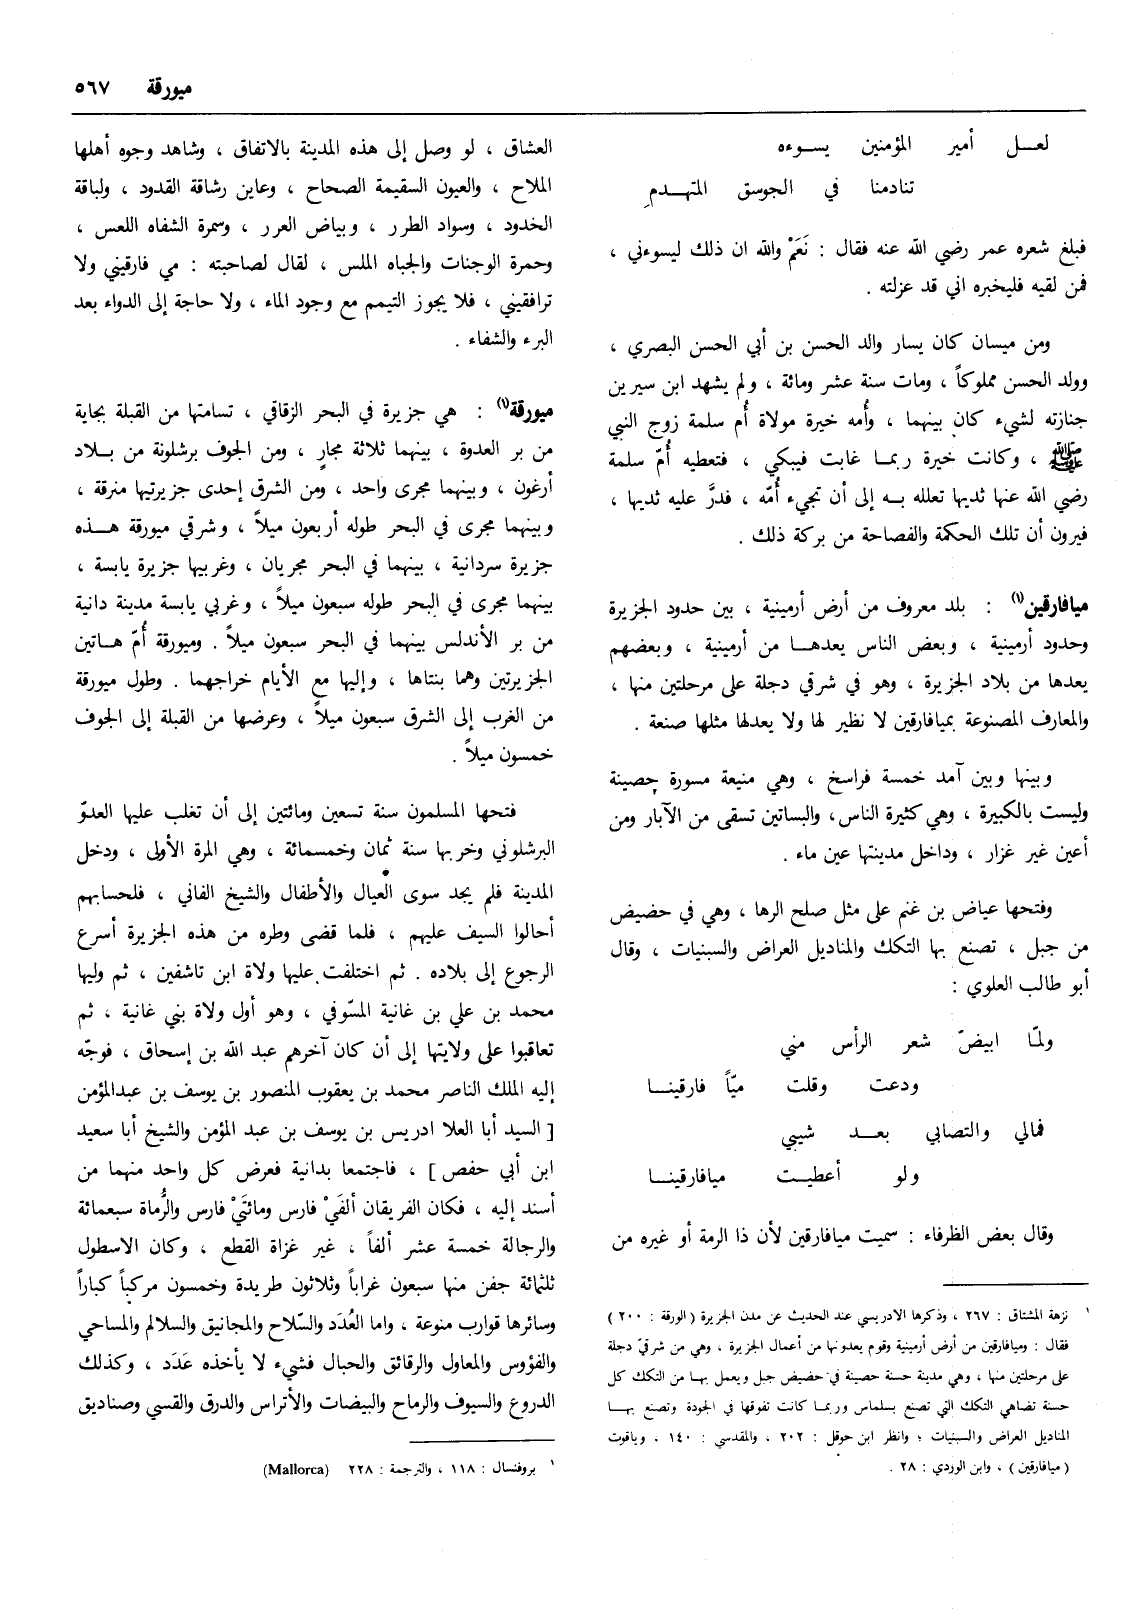 ميورقة ٥٦٧
لعـــل أمير المؤمنين يســـوءه
تنادمنا في الجوسق المتهـــدمِ
فبلغ شعره عمر رضي الله عنه فقال : نَعَمْ والله ان ذلك ليسوءني ،
فمن لقيه فليخبره اني قد عزلته .
ومن ميسان كان يسار والد الحسن بن أبي الحسن البصري ،
وولد الحسن مملوكاً ، ومات سنة عشر ومائة ، ولم يشهد ابن سيرين
جنازته لشيء كان بينهما ، وأمه خيرة مولاة أُم سلمة زوج النبي
ﷺ ، وكانت خيرة ربمـا غابت فيبكي ، فتعطيه أُمّ سلمة
رضي الله عنها ثديها تعلله بـه إلى أن تجيء أُمّه ، فدرَّ عليه ثديها ،
فيرون أن تلك الحكمة والفصاحة من بركة ذلك .
ميافارقين(١) : بلد معروف من أرض أرمينية ، بين حدود الجزيرة
وحدود أرمينية ، وبعض الناس يعدهـــا من أرمينية ، وبعضهم
يعدها من بلاد الجزيرة ، وهو في شرقي دجلة على مرحلتين منها ،
والمعارف المصنوعة بميافارقين لا نظير لها ولا يعدلها مثلها صنعة .
وبينها وبين آمد خمسة فراسخ ، وهي منيعة مسورة حصينة
وليست بالكبيرة ، وهي كثيرة الناس، والبساتين تسقى من الآبار ومن
أعين غير غزار ، وداخل مدينتها عين ماء .
وفتحها عياض بن غنم على مثل صلح الرها ، وهي في حضيض
من جبل ، تصنع بها التكك والمناديل العراض والسبنيات ، وقال
أبو طالب العلوي :
ولمّا ابيضّ شعر الرأس مني
ودعت وقلت ميّاً فارقينـــا
فمالي والتصابي بعـــد شيبي
ولو أعطيـــت ميافارقينـــا
وقال بعض الظرفاء : سميت ميافارقين لأن ذا الرمة أو غيره من
١ نزهة المشتاق : ٢٦٧ ، وذكرها الادريسي عند الحديث عن مدن الجزيرة (الورقة : ٢٠٠)
فقال : وميافارقين من أرض أرمينية وقوم يعدونها من أعمال الجزيرة ، وهي من شرقيّ دجلة
على مرحلتين منها ، وهي مدينة حسنة حصينة في حضيض جبل ويعمل بهـا من التكك كل
حسنة تضاهي التكك التي تصنع بسلماس وربمـا كانت تفوقها في الجودة وتصنع بهـا
المناديل العراض والسبنيات ؛ وانظر ابن حوقل : ٢٠٢ ، والمقدسي : ١٤٠ ، وياقوت
(ميافارقين) ، وابن الوردي : ٢٨ .
العشاق ، لو وصل إلى هذه المدينة بالاتفاق ، وشاهد وجوه أهلها
الملاح ، والعيون السقيمة الصحاح ، وعاين رشاقة القدود ، ولباقة
الخدود ، وسواد الطرر ، وبياض الغرر ، وسمرة الشفاه اللعس ،
وحمرة الوجنات والجباه الملس ، لقال لصاحبته : مي فارقيني ولا
ترافقيني ، فلا يجوز التيمم مع وجود الماء ، ولا حاجة إلى الدواء بعد
البرء والشفاء .
ميورقة(١) : هي جزيرة في البحر الزقاقي ، تسامتها من القبلة بجاية
من بر العدوة ، بينهما ثلاثة مجارٍ ، ومن الجوف برشلونة من بـــلاد
أرغون ، وبينهما مجرى واحد ، ومن الشرق إحدى جزيرتيها منرقة ،
وبينهما مجرى في البحر طوله أربعون ميلاً ، وشرقي ميورقة هـــذه
جزيرة سردانية ، بينهما في البحر مجريان ، وغربيها جزيرة يابسة ،
بينهما مجرى في البحر طوله سبعون ميلاً ، وغربي يابسة مدينة دانية
من بر الأندلس بينهما في البحر سبعون ميلاً . وميورقة أُمّ هـاتين
الجزيرتين وهما بنتاها ، وإليها مع الأيام خراجهما . وطول ميورقة
من الغرب إلى الشرق سبعون ميلاً ، وعرضها من القبلة إلى الجوف
خمسون ميلاً .
فتحها المسلمون سنة تسعين ومائتين إلى أن تغلب عليها العدوّ
البرشلوني وخربها سنة ثمان وخمسمائة ، وهي المرة الأولى ، ودخل
المدينة فلم يجد سوى العيال والأطفال والشيخ الفاني ، فلحسابهم
أحالوا السيف عليهم ، فلما قضى وطره من هذه الجزيرة أسرع
الرجوع إلى بلاده . ثم اختلفت عليها ولاة ابن تاشفين ، ثم وليها
محمد بن علي بن غانية المسّوفي ، وهو أول ولاة بني غانية ، ثم
تعاقبوا على ولايتها إلى أن كان آخرهم عبد الله بن إسحاق ، فوجّه
إليه الملك الناصر محمد بن يعقوب المنصور بن يوسف بن عبدالمؤمن
[ السيد أبا العلا ادريس بن يوسف بن عبد المؤمن والشيخ أبا سعيد
ابن أبي حفص ] ، فاجتمعا بدانية فعرض كل واحد منهما من
أسند إليه ، فكان الفريقان ألفَيْ فارس ومائتَيْ فارس والرُّماة سبعمائة
والرجالة خمسة عشر ألفاً ، غير غزاة القطع ، وكان الاسطول
ثلثمائة جفن منها سبعون غراباً وثلاثون طريدة وخمسون مركباً كباراً
وسائرها قوارب منوعة ، واما العُدَد والسّلاح والمجانيق والسلالم والمساحي
والفؤوس والمعاول والرقائق والحبال فشيء لا يأخذه عَدَد ، وكذلك
الدروع والسيوف والرماح والبيضات والأتراس والدرق والقسي وصناديق
١ بروفنسال : ١١٨ ، والترجمة : ٢٢٨ (Mallorca)